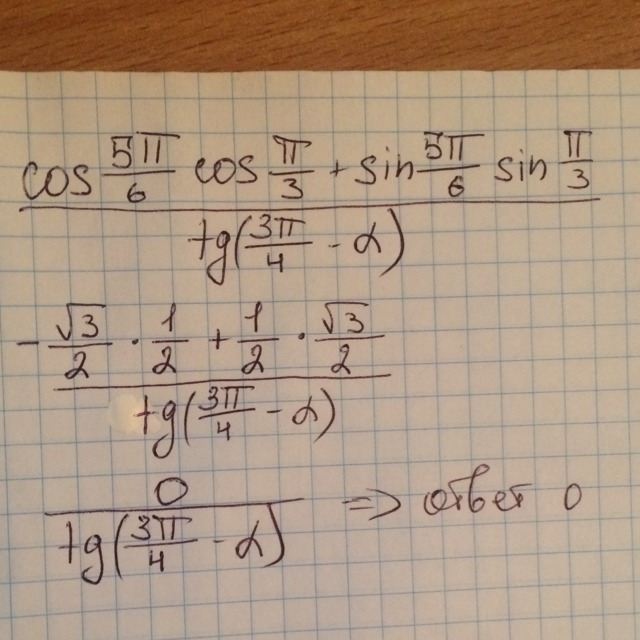 cos 5π/6 cos π/3 + sin 5π/6 sin π/3
tg(3π/4 - α)
- √3/2 · 1/2 + 1/2 · √3/2
tg(3π/4 - α)
0
tg(3π/4 - α) => ответ 0